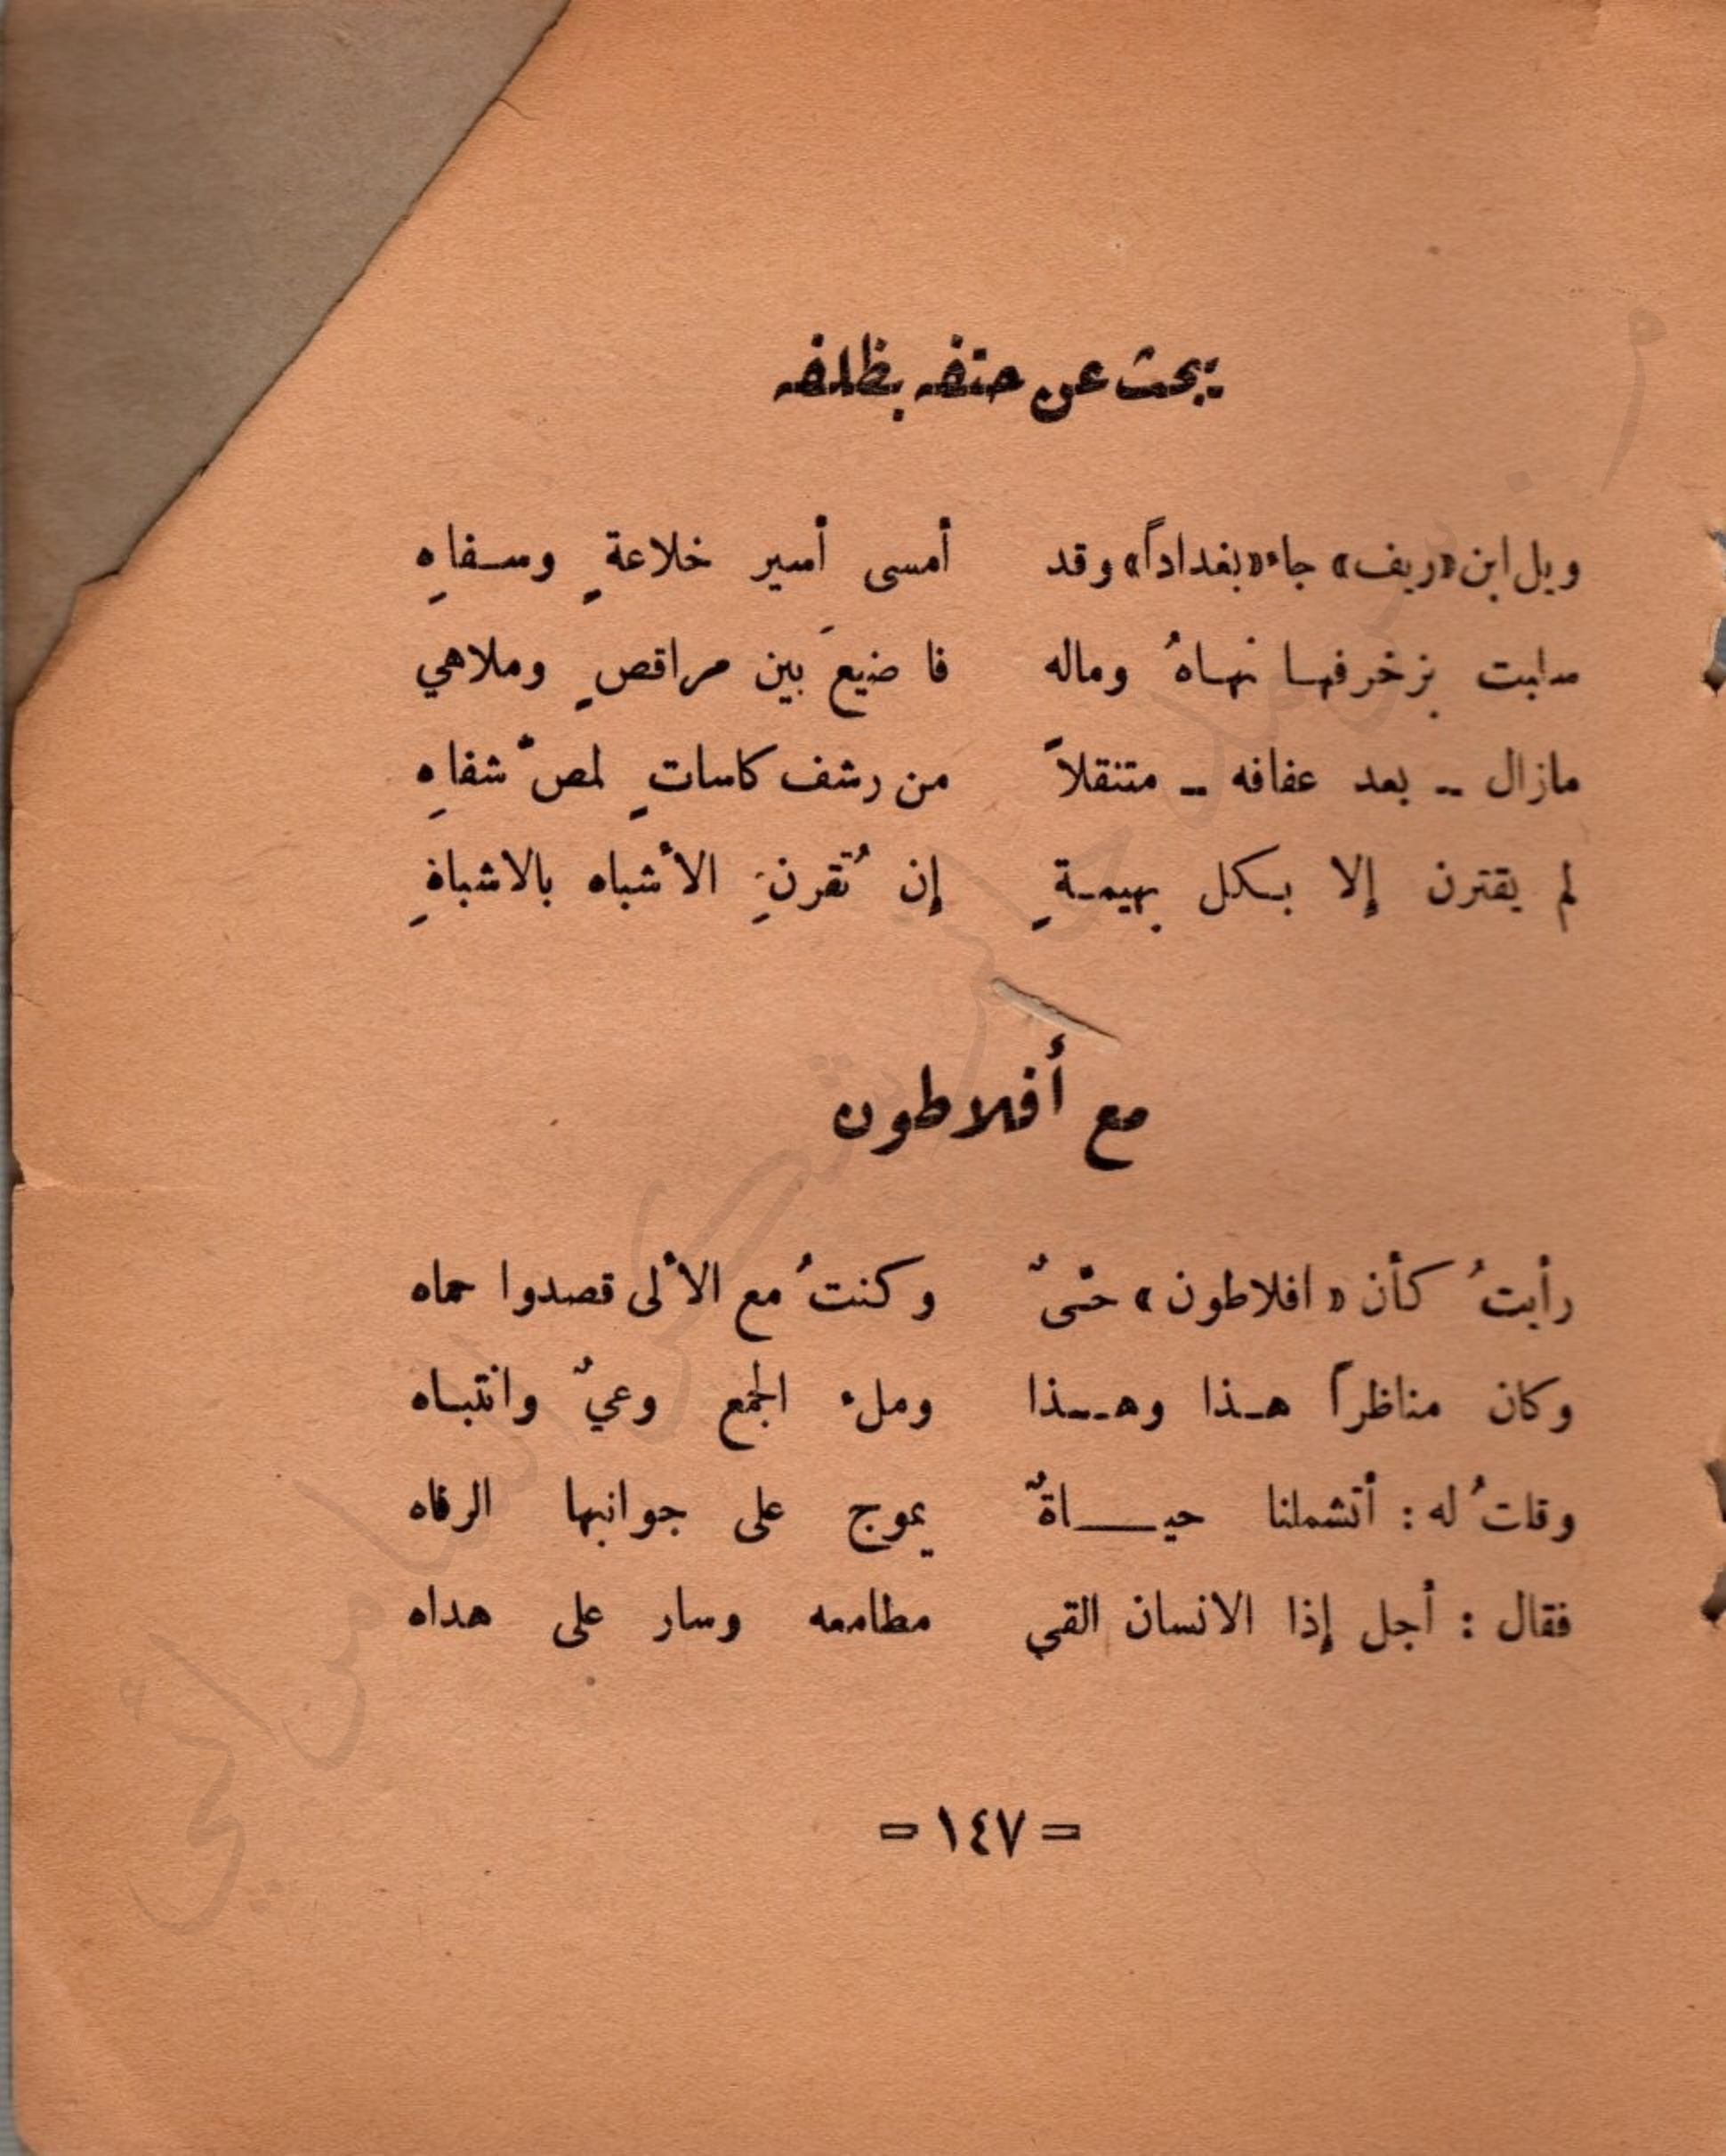 يبحث عن حتفه بظلفه
ويل ابن «ريف» جاء «بغداداً» وقد أمسى أسير خلاعةٍ وسفاهِ
سلبت بزخرفها نهاهُ وماله فاضيعَ بين مراقصٍ وملاهي
مازال - بعد عفافه - متنقلاً من رشف كاساتٍ لمصّ شفاهِ
لم يقترن إلا بكل بهيمةٍ إن تُقرنِ الأشباه بالاشباهِ
مع أفلاطون
رأيتُ كأن «افلاطون» حيٌّ وكنتُ مع الألى قصدوا حماه
وكان مناظراً هذا وهذا وملء الجمع وعيٌ وانتباه
وقلتُ له : أتشملنا حياةٌ يموج على جوانبها الرفاه
فقال : أجل إذا الانسان القى مطامعه وسار على هداه
= ١٤٧ =